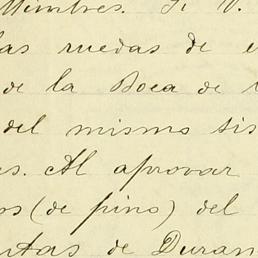 Mimbres. Si V.
las ruedas de
de la Boca de
del mismo sis
es. Al aprovar
os (de pino) del
ntas de Duran